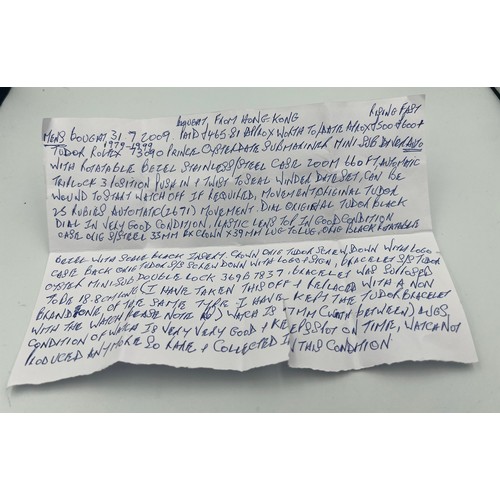 BOUGHT, FROM HONG KONG RISING FAST
MENS BOUGHT 31.7.2009. PAID £465.81 APROX WORTH TO/DATE APROX £500-£600+
1979-1999
TUDOR ROLEX 73090 PRINCE OYSTERDATE SUBMARINER MINI-SUB DIVER AUTO
WITH ROTATABLE BEZEL STAINLESS/STEEL CASE 200M 660 FT, AUTOMATIC
TRIPLOCK 3 POSITION PUSH IN & TWIST TO SEAL WINDER DATE SET, CAN BE
WOUND TO START WATCH OFF IF REQUIRED, MOVEMENT ORIGINAL TUDOR
25 RUBIES AUTOMATIC (2671) MOVEMENT. DIAL ORIGINAL TUDOR BLACK
DIAL IN VERY GOOD CONDITION, PLASTIC LENS TOP IN GOOD CONDITION
CASE ORIG S/STEEL 33MM EX CROWN X 39MM LUG TO LUG, ORIG BLACK ROTATABLE
BEZEL WITH SOME BLACK INSERT, CROWN ORIG TUDOR SCREW DOWN WITH LOGO
CASE BACK ORIG TUDOR S/S SCREW DOWN WITH LOGO + SIGN, BRACELET S/S TUDOR
OYSTER MINI-SUB DOUBLE LOCK 369B 7837, BRACELET WAS SUPPOSED
TO BE 18.8CM LONG (I HAVE TAKEN THIS OFF & REPLACED WITH A NON
BRAND ONE OF THE SAME TYPE I HAVE KEPT THE TUDOR BRACELET
WITH THE WATCH PLEASE NOTE WATCH IS 17MM (WIDTH BETWEEN) LUGS,
CONDITION OF WATCH IS VERY VERY GOOD & KEEPS SPOT ON TIME, WATCH NOT
PRODUCED ANYMORE SO RARE & COLLECTED IN THIS CONDITION